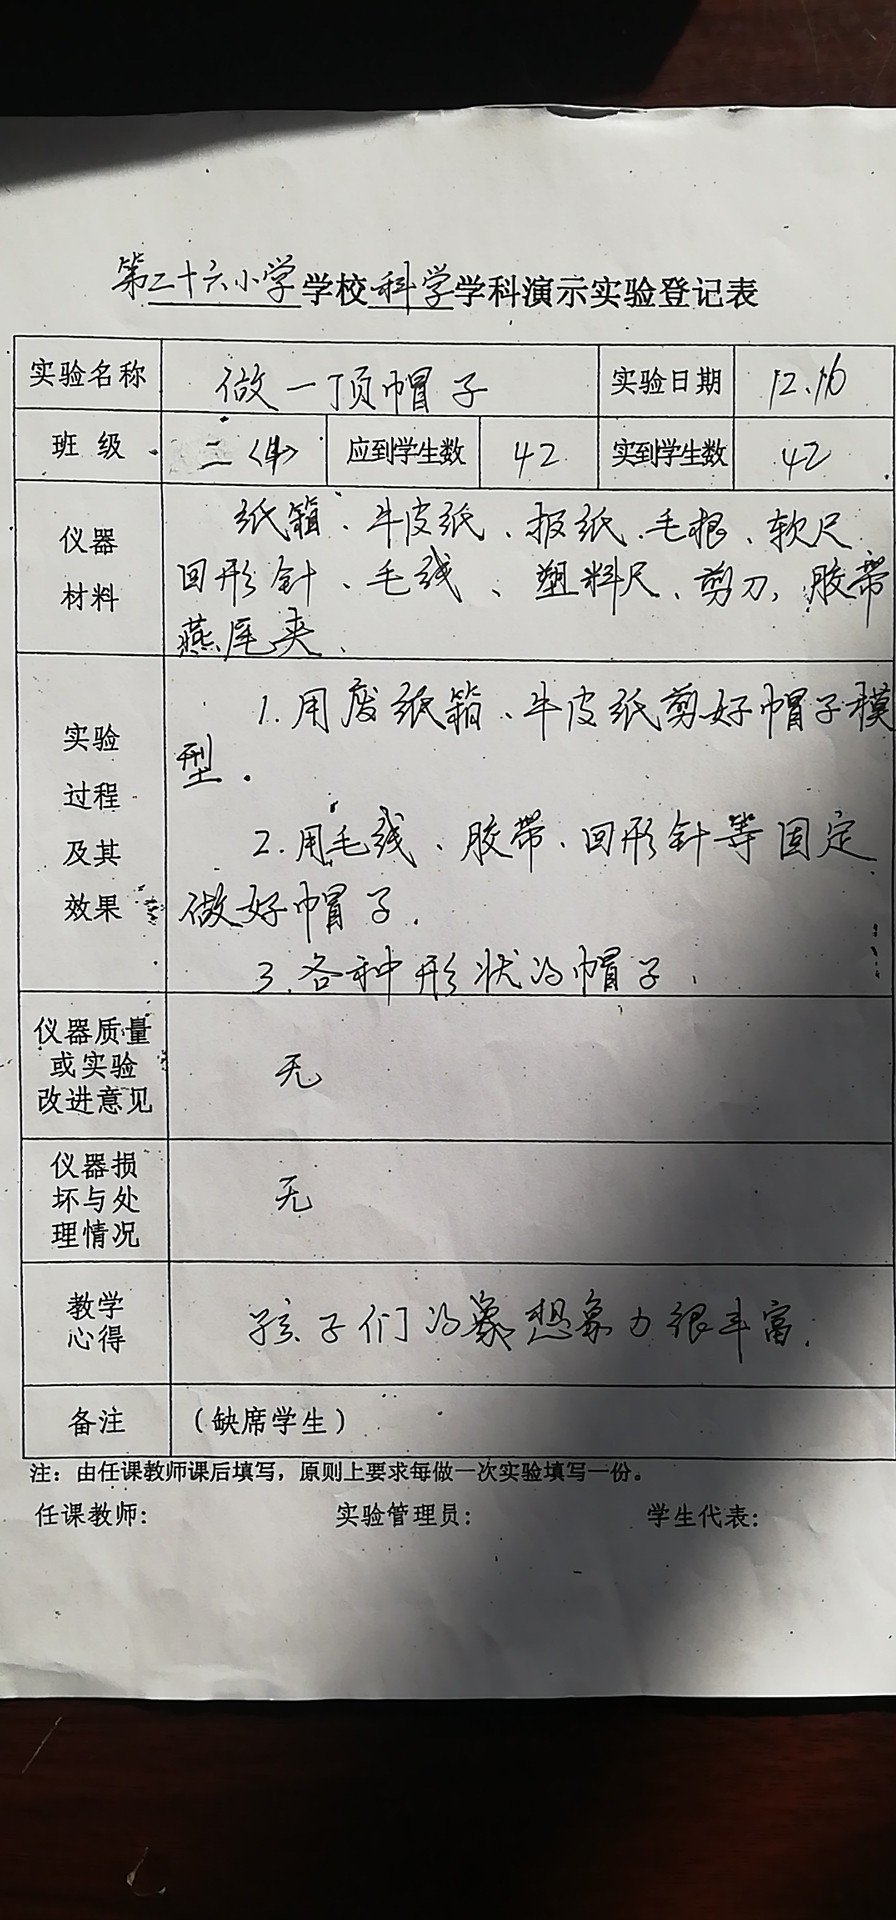 第二十六小学学校科学学科演示实验登记表
实验名称 做一顶帽子 实验日期 12.16
班 级 二 应到学生数 42 实到学生数 42
仪器
材料
纸箱、牛皮纸、报纸、毛根、软尺
回形针、毛线、塑料尺、剪刀、胶带
燕尾夹、
实验
过程
及其
效果
1.用废纸箱、牛皮纸剪好帽子模
型.
2.用毛线、胶带、回形针等固定
做好帽子.
3.各种形状的帽子.
仪器质量
或实验
改进意见
无
仪器损
坏与处
理情况
无
教学
心得
孩子们的想象力很丰富.
备注 (缺席学生)
注：由任课教师课后填写，原则上要求每做一次实验填写一份。
任课教师： 实验管理员： 学生代表：